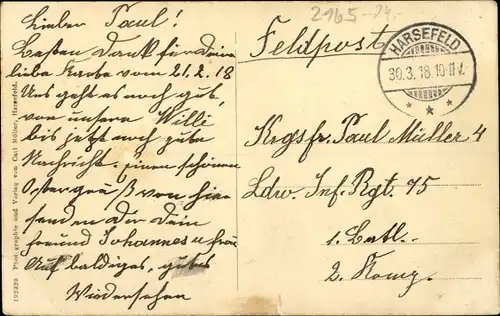 Lieber Paul!
Besten Dank für Deine
liebe Karte vom 21.2.18
Uns geht es noch gut,
von unsern Willi
bis jetzt noch gute
Nachricht. einen schönen
Ostergruß von hier
senden Dir Dein
freund Johannes u frau
Auf baldiges, gutes
Wiedersehen
192339 Photographie und Verlag von Carl Müller, Harsefeld.
2165
Feldpost
HARSEFELD
30.3.18.10-11V.
Krgsfr. Paul Müller 4
Ldw. Inf. Rgt. 75
1. Batl.
2. Komp.